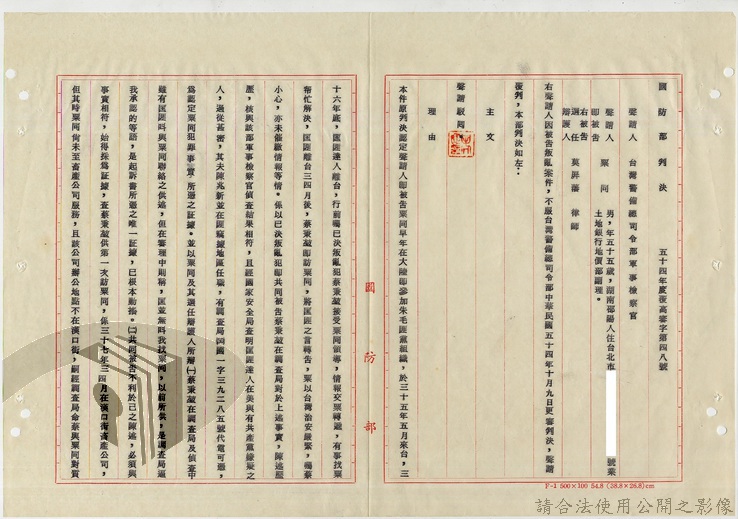 國防部判決　五十四年度覆高審字第四八號
聲請人　台灣警備總司令部軍事檢察官
聲請人
即被告　粟同　男，年五十五歲，湖南邵陽人住台北市
號業
土地銀行地價部副理。
右被告
選任
辯護人　莫屛藩　律師
右聲請人因被告叛亂案件，不服台灣警備總司令部中華民國五十四年十月九日更審判決，聲請
覆判，本部判決如左：
主文
聲請駁回
理由
本件原判決認定聲請人即被告粟同早年在大陸即參加朱毛匪黨組織，於三十五年五月來台，三
十六年底，匪匪達人離台，行前囑已決叛亂犯蔡秉堃接受粟同領導，情報交粟轉遞，有事找粟
幫忙解決，匪匪離台三四月後，蔡秉堃即訪粟同，將匪匪之言轉告，粟以台灣治安嚴緊，囑蔡
小心，亦未催繳情報等情。係以已決叛亂犯即共同被告蔡秉堃在調查局對於上述事實，陳述歷
歷，核與該部軍事檢察官偵查結果相符，且經國家安全局查明匪匪達人在美與有共產黨嫌疑之
人，過從甚密，其夫陳兆新並在匪竊據地匪任職，有調查局㈣國一字三九二八五號代電可憑，
為認定粟同犯罪事實所憑之証據。並以粟同及其選任辯護人所辯㈠蔡秉堃在調查局及偵查中
雖有匪匪叫與粟同聯絡之供述，但在審理中則稱，匪並無叫我找粟同，以前所供，是調查局逼
我承認的等語，是起訴書所憑之唯一証據，已根本動搖。㈡共同被告不利於己之陳述，必須與
事實相符，始得採為証據，查蔡秉堃供第一次訪粟同，係三十七年三四月在漢口街畜產公司，
但其時粟同尚未至畜產公司服務，且該公司辦公地點不在漢口街，嗣經調查局命蔡與粟同對質
國防部
F-1 500×100 54.8 (28.8×28.8)cm
請合法使用公開之影像